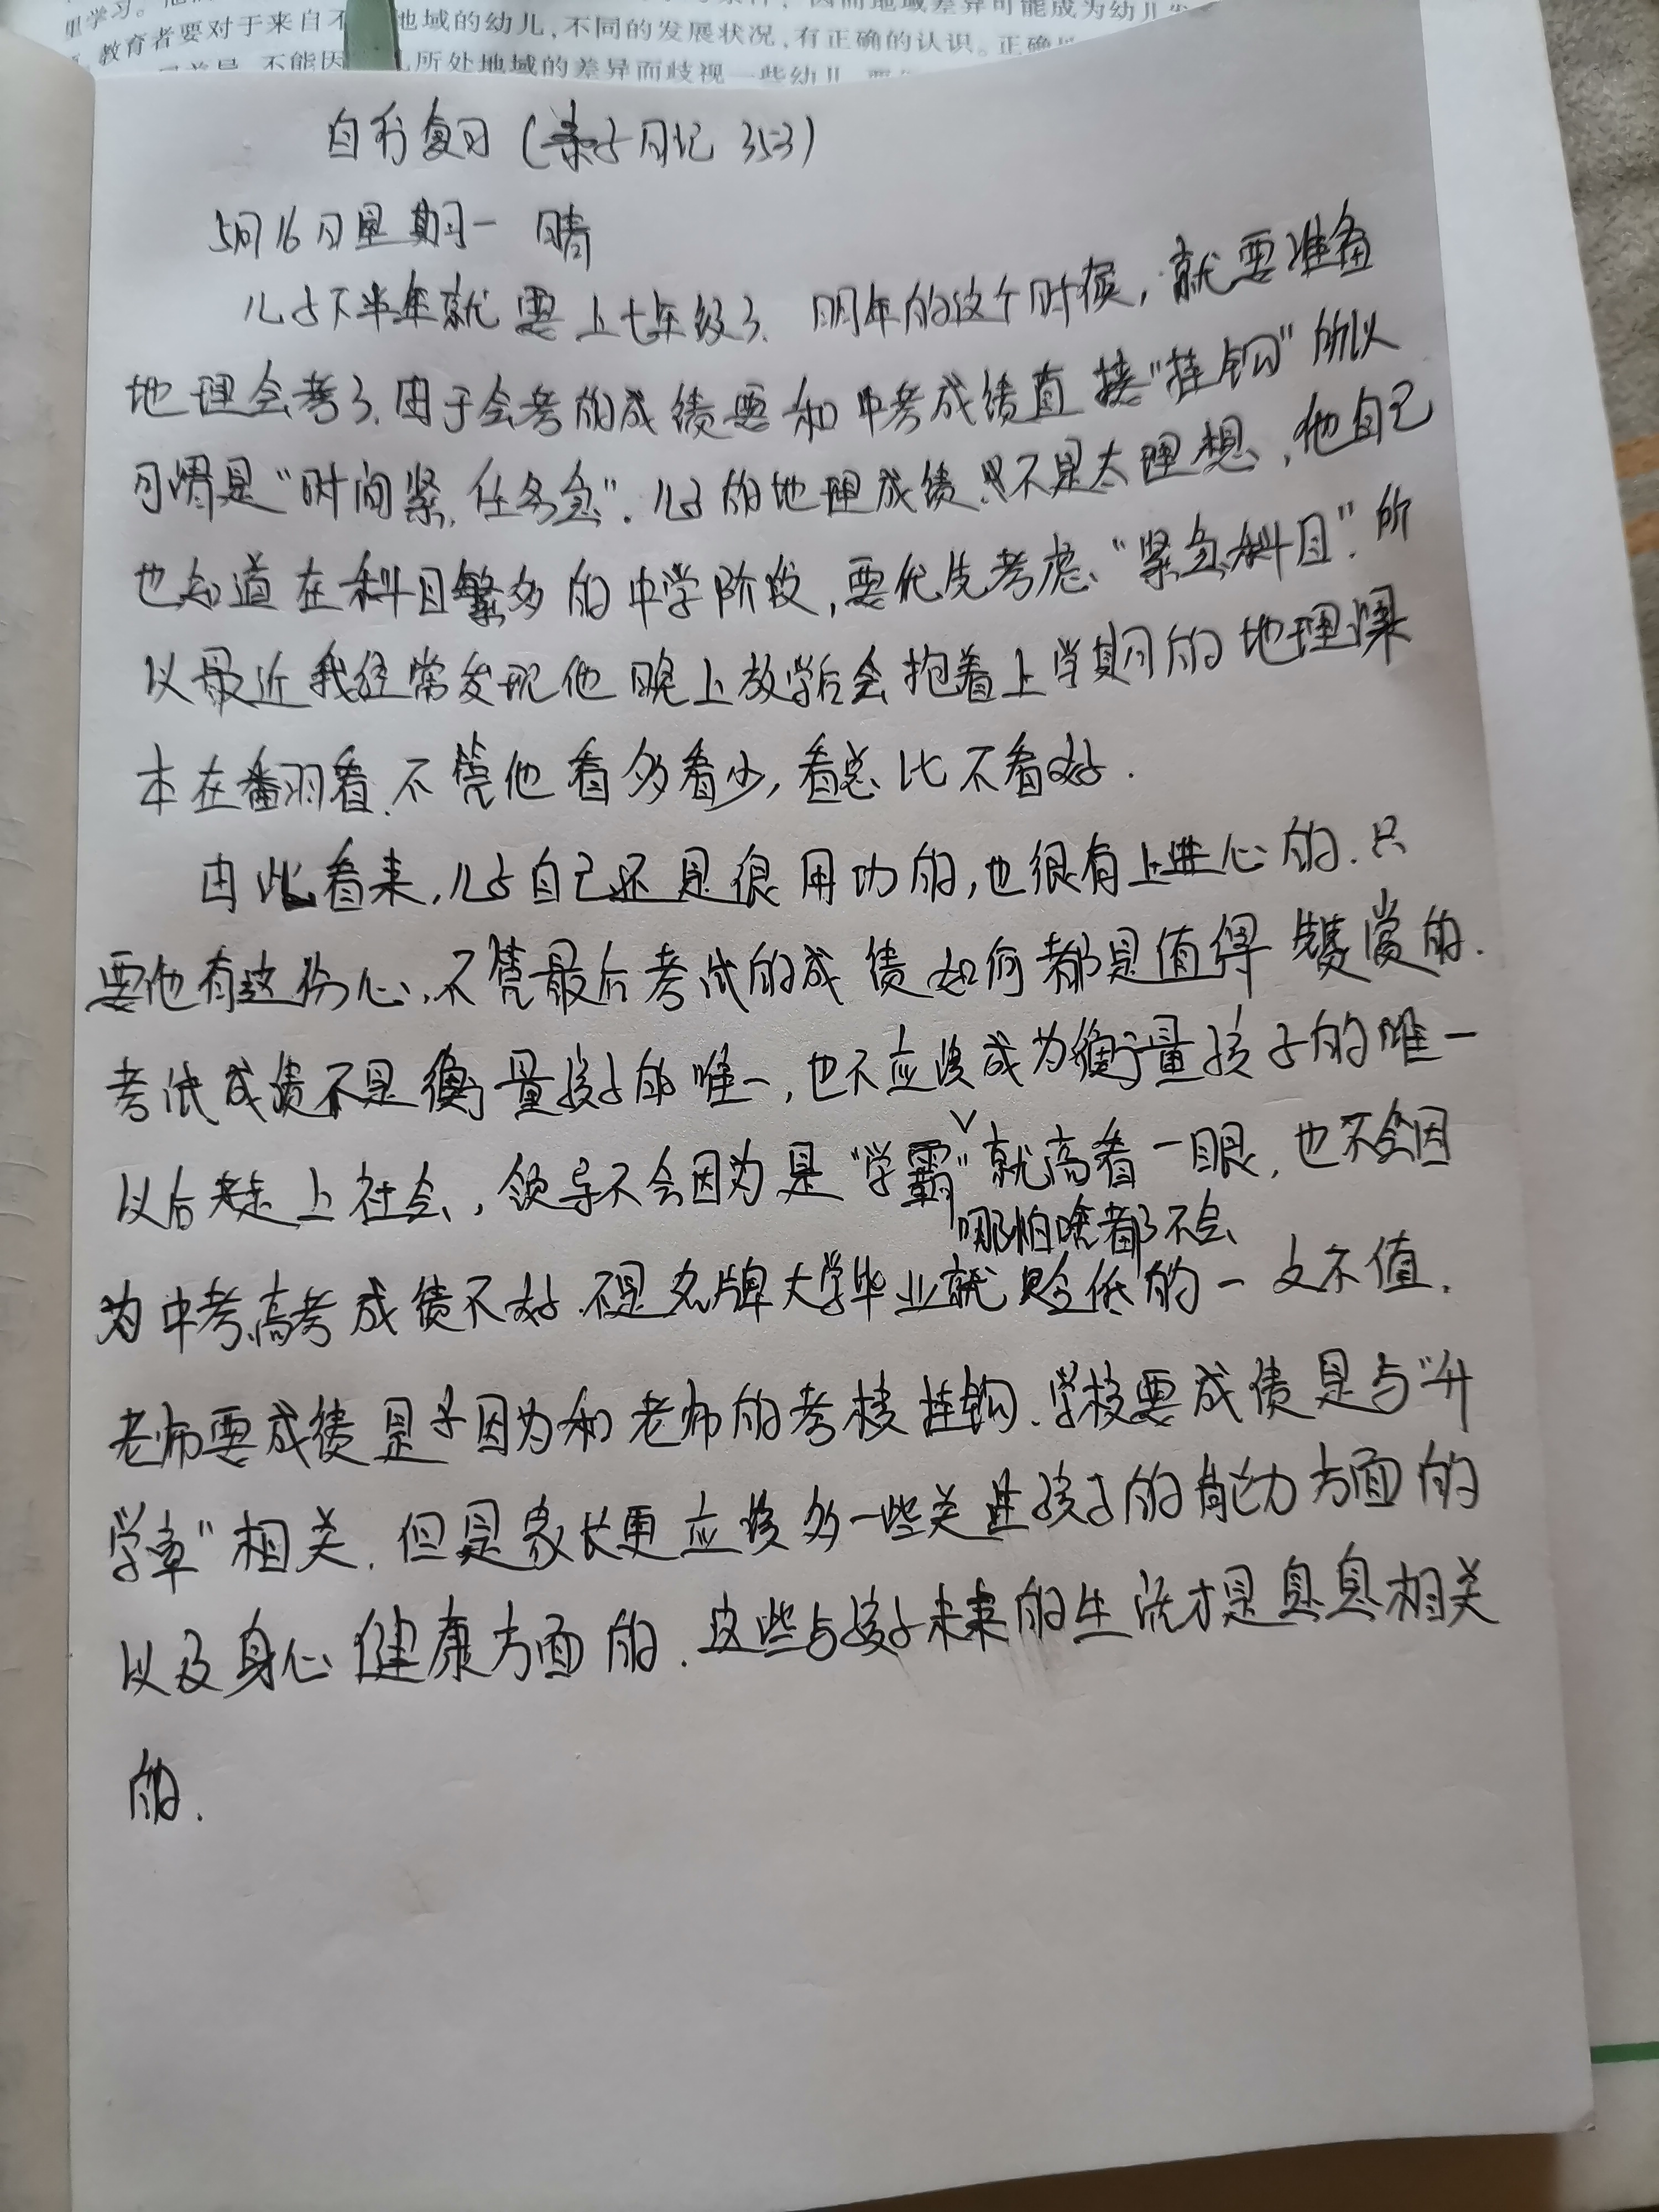 里学习。
教育者要对于来自不 地域的幼儿,不同的发展状况,有正确的认识。正确
不能因 儿所处地域的差异而歧视一些幼儿
自行复习(亲子日记353)
5月16日星期一 晴
儿子下半年就要上七年级了.明年的这个时候,就要准备
地理会考了.由于会考的成绩要和中考成绩直接“挂钩”所以
可谓是“时间紧,任务急”.儿子的地理成绩 不是太理想,他自己
也知道在科目繁多的中学阶段,要优先考虑“紧急科目”.所
以最近我经常发现他晚上放学后会抱着上学期的地理课
本在翻看.不管他看多看少,看总比不看好.
由此看来,儿子自己还是很用功的,也很有上进心的.只
要他有这份心,不管最后考试的成绩如何都是值得赞赏的.
考试成绩不是衡量孩子的唯一,也不应该成为衡量孩子的唯一
以后走上社会,领导不会因为是“学霸”就高看一眼,也不会因
哪怕啥都不会
为中考、高考成绩不好.不是名牌大学毕业就贬低的一文不值.
老师要成绩是 因为和老师的考核挂钩.学校要成绩是与“升
学率”相关.但是家长更应该多一些关注孩子的能力方面的
以及身心健康方面的.这些与孩子未来的生活才是息息相关
的.